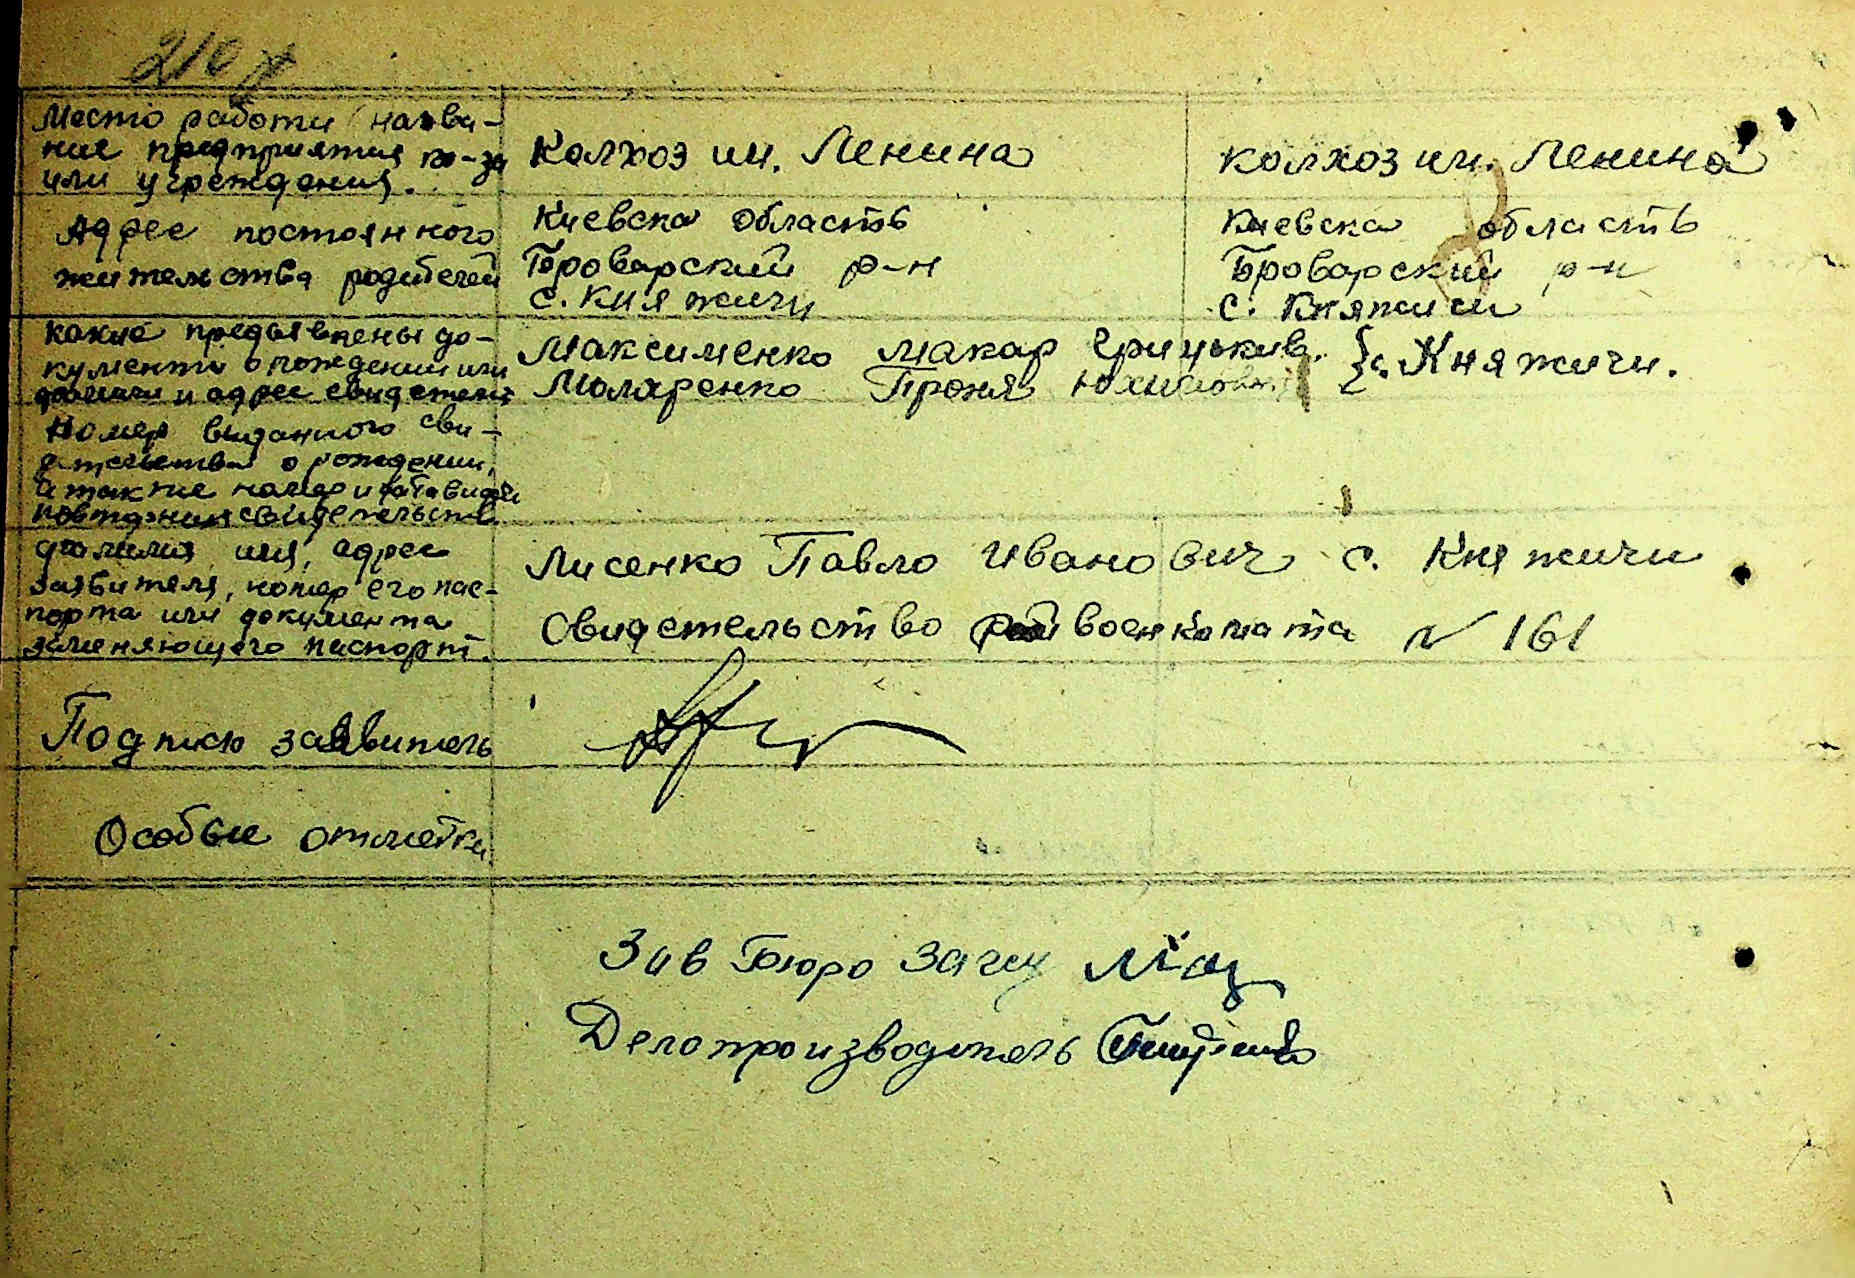 210
Место работи (назва-
ние предприятия к-за
или учреждения.
Колхоз им. Ленина
колхоз им. Ленина
Адрес постоянного
жительства родителей
Киевска область
Броварский р-н
с. Княжичи
Киевска область
Броварский р-н
с. Княжичи
какие предъявлены до-
кументи о рождении или
фамили и адрес свидетелей
Максименко Макар Грицьков.
Моларенко Проня
с. Княжичи.
Номер виданного сви-
детельства о рождении,
а также номер и дата видачи
повторних свидетельств.
фамилия, имя, адрес
заявителя, номер его пас-
порта или документа
заменяющего паспорт.
Лисенко Павло Иванович с. Княжичи
Свидетельство военкомата № 161
Подписю заявитель
Особые отметки
Зав Бюро Загсу
Делопроизводитель